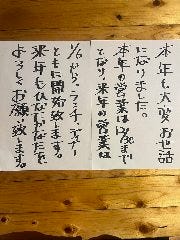 本年も大変お世話
になりました。
本年の営業は12/30まで
となり、来年の営業は
1/6から、ランチ、ディナー
ともに開始致します。
来年もひなたかなたを、
よろしくお願い致します。